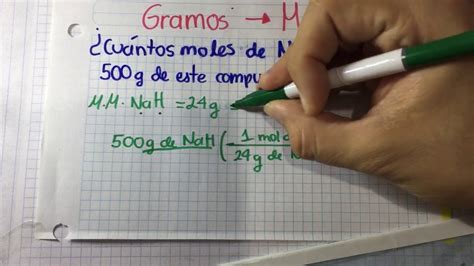 Gramos → M
¿Cuántos moles de N
500g de este compu
M.M. NaH = 24g
500g de NaH ( 1 mol
24g de N